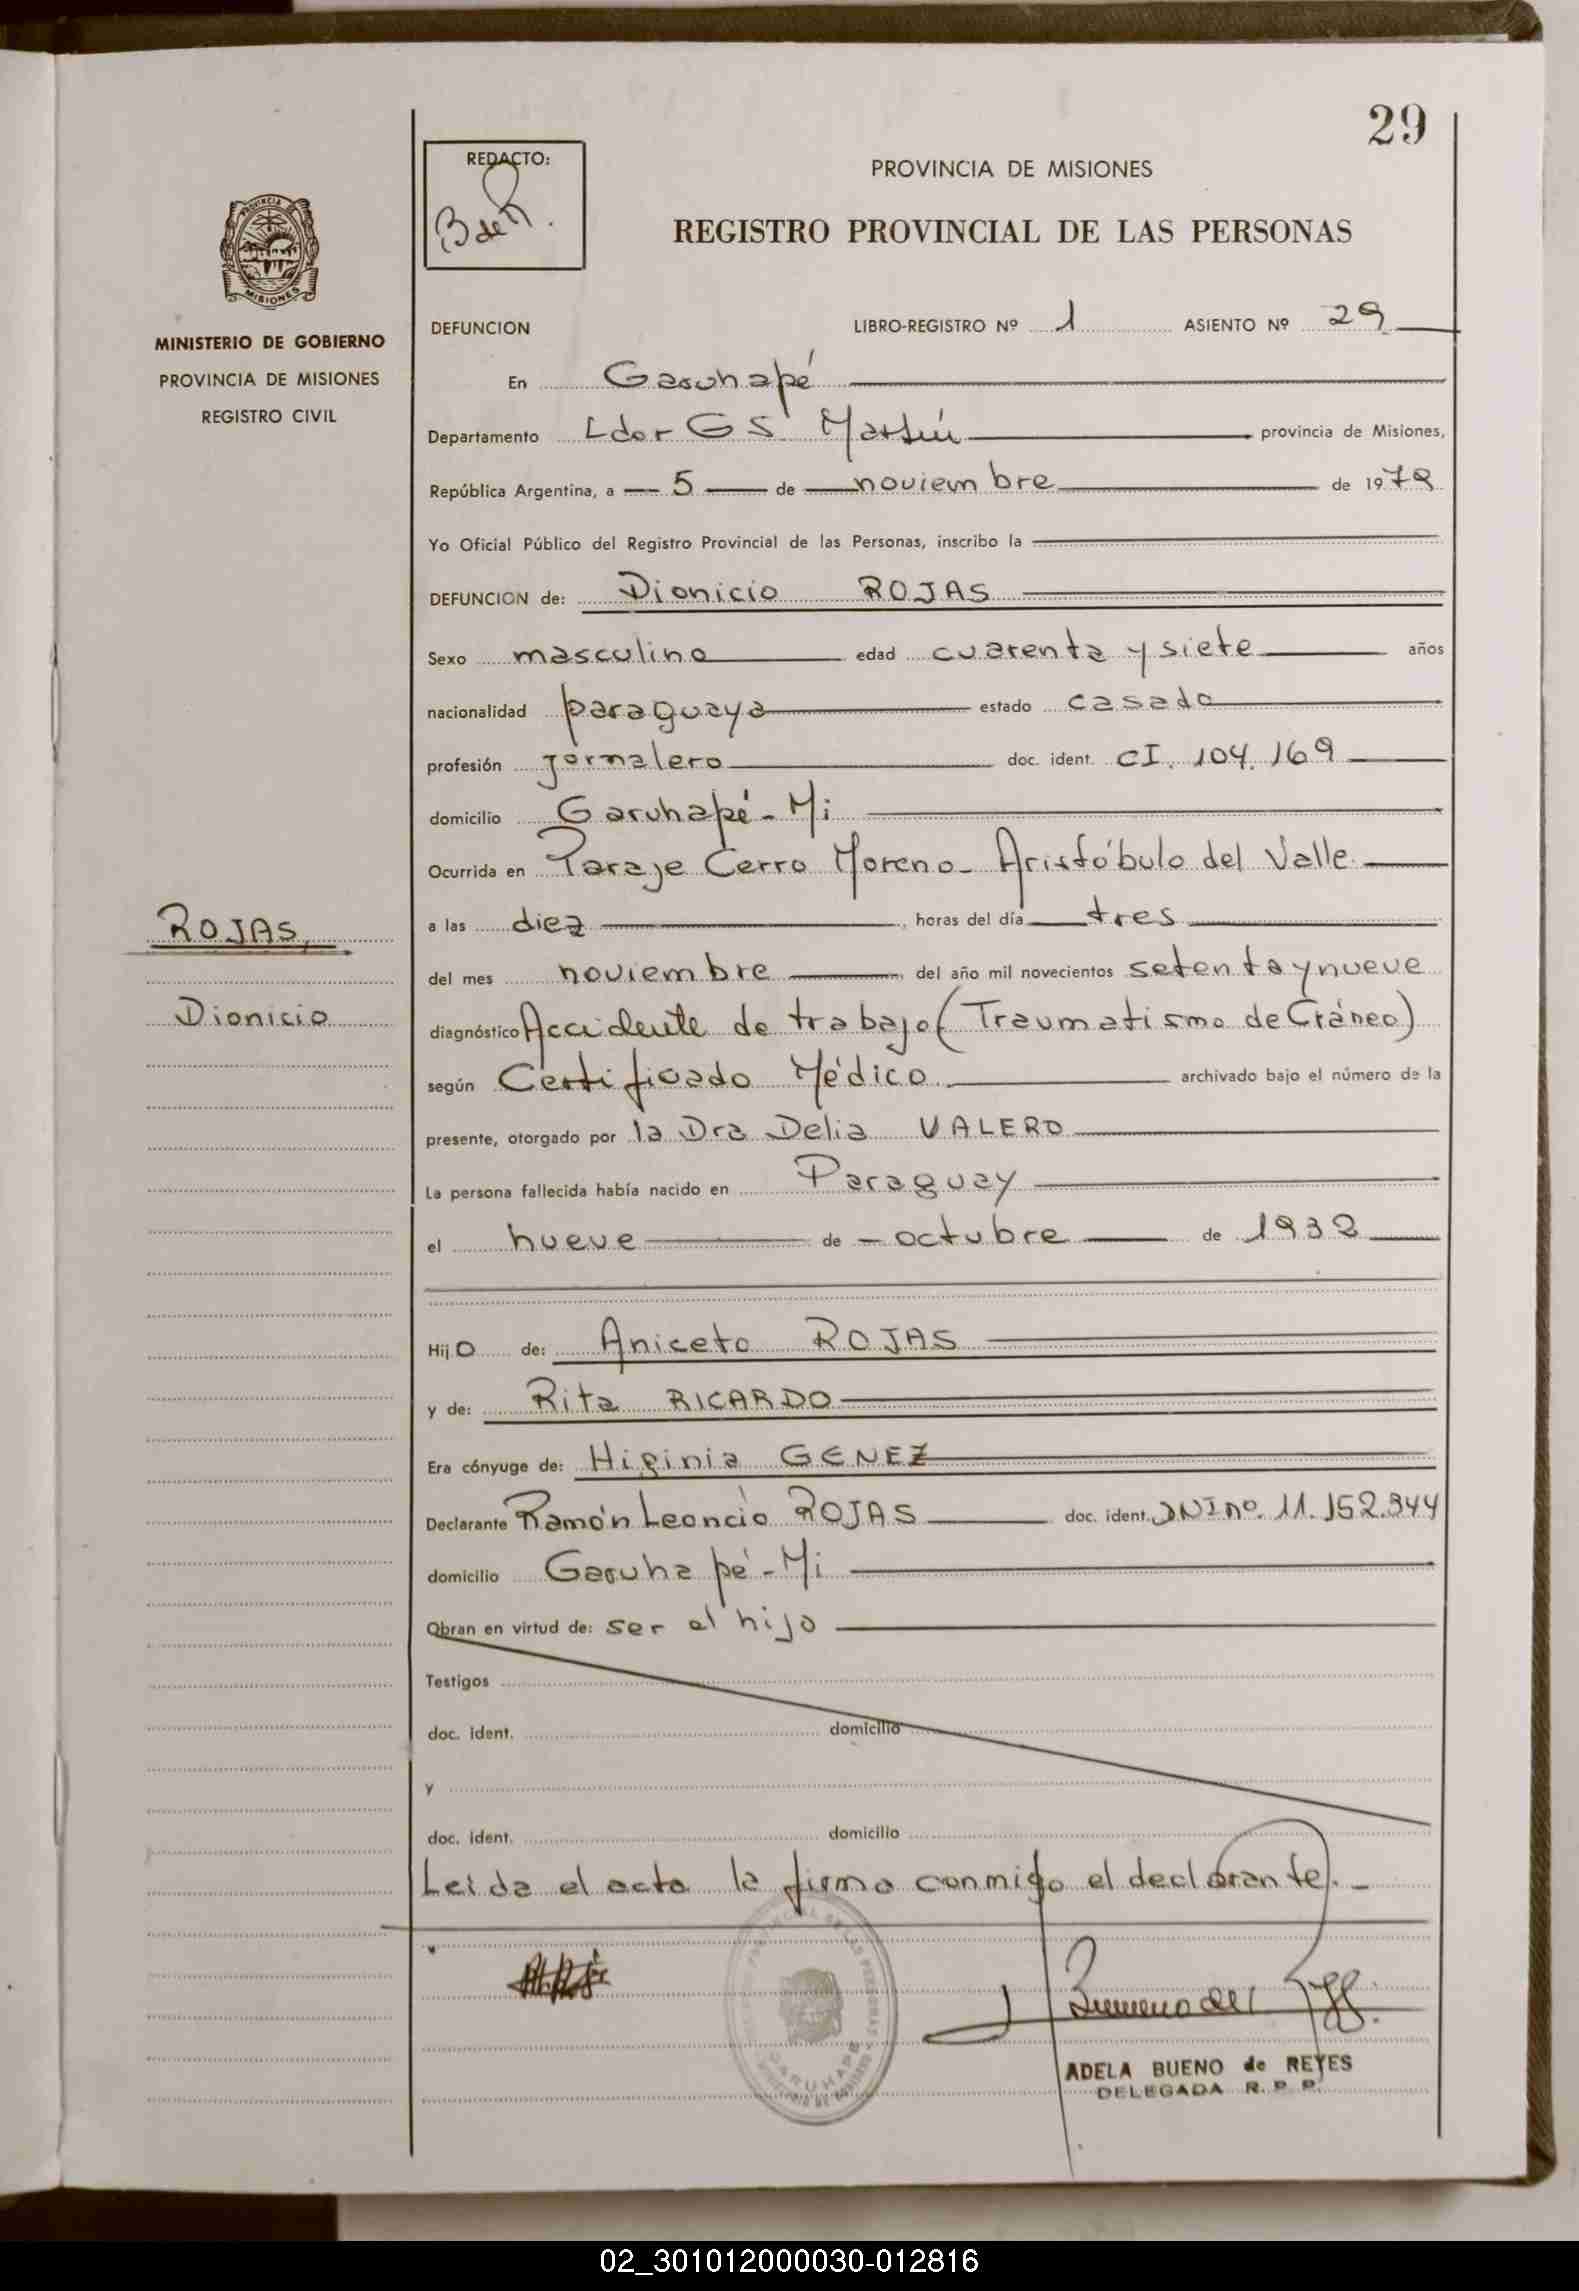 29
REDACTO:
B de R.
PROVINCIA DE MISIONES
REGISTRO PROVINCIAL DE LAS PERSONAS
MINISTERIO DE GOBIERNO
PROVINCIA DE MISIONES
REGISTRO CIVIL
DEFUNCION LIBRO-REGISTRO Nº 1 ASIENTO Nº 29
En Garuhapé
Departamento Ldor G S Martín provincia de Misiones,
República Argentina, a 5 de noviembre de 1979
Yo Oficial Público del Registro Provincial de las Personas, inscribo la
DEFUNCION de: Dionicio ROJAS
Sexo masculino edad cuarenta y siete años
nacionalidad paraguaya estado casado
profesión jornalero doc. ident. CI. 104.169
domicilio Garuhapé - Mi
Ocurrida en Paraje Cerro Moreno - Aristóbulo del Valle
ROJAS,
a las diez, horas del día tres
del mes noviembre, del año mil novecientos setenta y nueve
Dionicio
diagnóstico Accidente de trabajo (Traumatismo de Cráneo)
según Certificado Médico archivado bajo el número de la
presente, otorgado por la Dra Delia VALERO
La persona fallecida había nacido en Paraguay
el nueve de octubre de 1932
Hijo de: Aniceto ROJAS
y de: Rita RICARDO
Era cónyuge de: Higinia GENEZ
Declarante Ramón Leoncio ROJAS doc. ident. DNI nº. 11.152.944
domicilio Garuhapé - Mi
Obran en virtud de: ser el hijo
Testigos
doc. ident. domicilio
y
doc. ident. domicilio
Leída el acta la firma conmigo el declarante. -
GARUHAPE
ADELA BUENO de REYES
DELEGADA R. P. P.
02_301012000030-012816